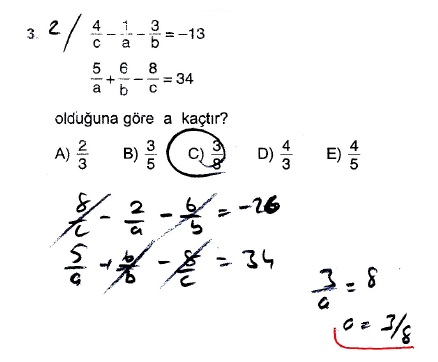 3. 2/ 4/c - 1/a - 3/b = -13
5/a + 6/b - 8/c = 34
olduğuna göre a kaçtır?
A) 2/3 B) 3/5 C) 3/8 D) 4/3 E) 4/5
8/c - 2/a - 6/b = -26
5/a + 6/b - 8/c = 34
3/a = 8
a = 3/8